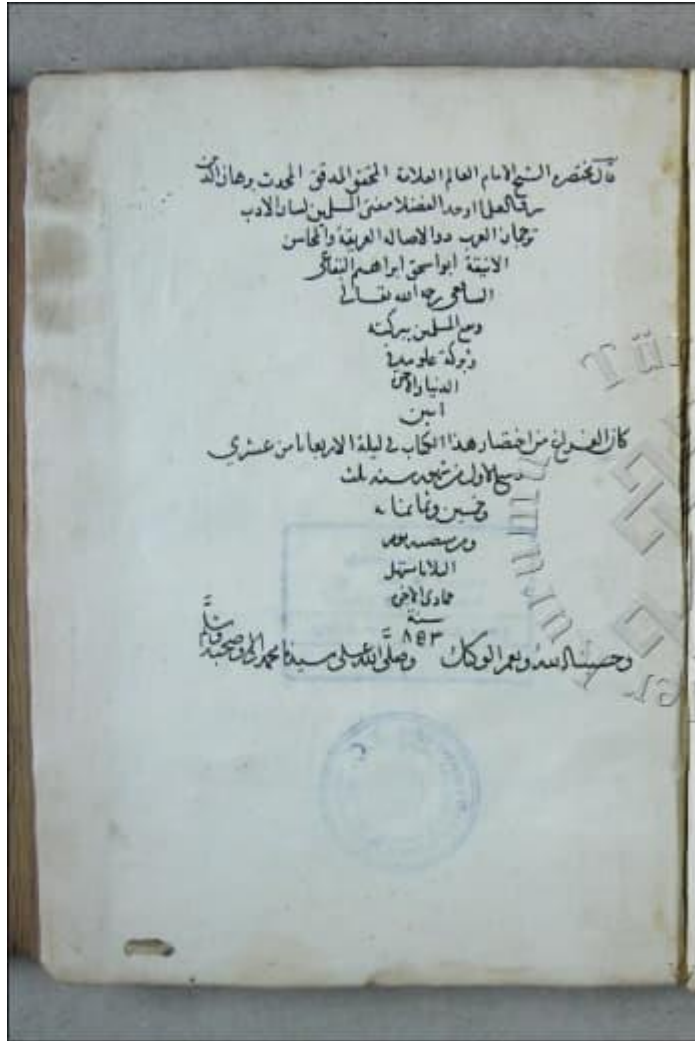 قال مختصره الشيخ الامام العالم العلامة المحقق المدقق المحدث برهان الدين
شرف العلما اوحد الفضلا مفتى المسلمين لسان الادب
ترجمان العرب ذو الاصاله العريقة والمحاسن
الانيقة ابو اسحق ابراهيم البقاعى
الشافعى رحمه الله تعالى
ونفع المسلمين ببركته
وبركة علومه فى
الدنيا والاخرة
امين
كان الفراغ من اختصار هذا الكتاب فى ليلة الاربعا ثامن عشرى
ربيع الاول من سنة ثلث
وخمسين وثمانمائة
يوم
الثلاثا مستهل
جمادى الاخرى
سنة
٨٥٣
وحسبنا الله ونعم الوكيل وصلى الله على سيدنا محمد واله وصحبه وسلم